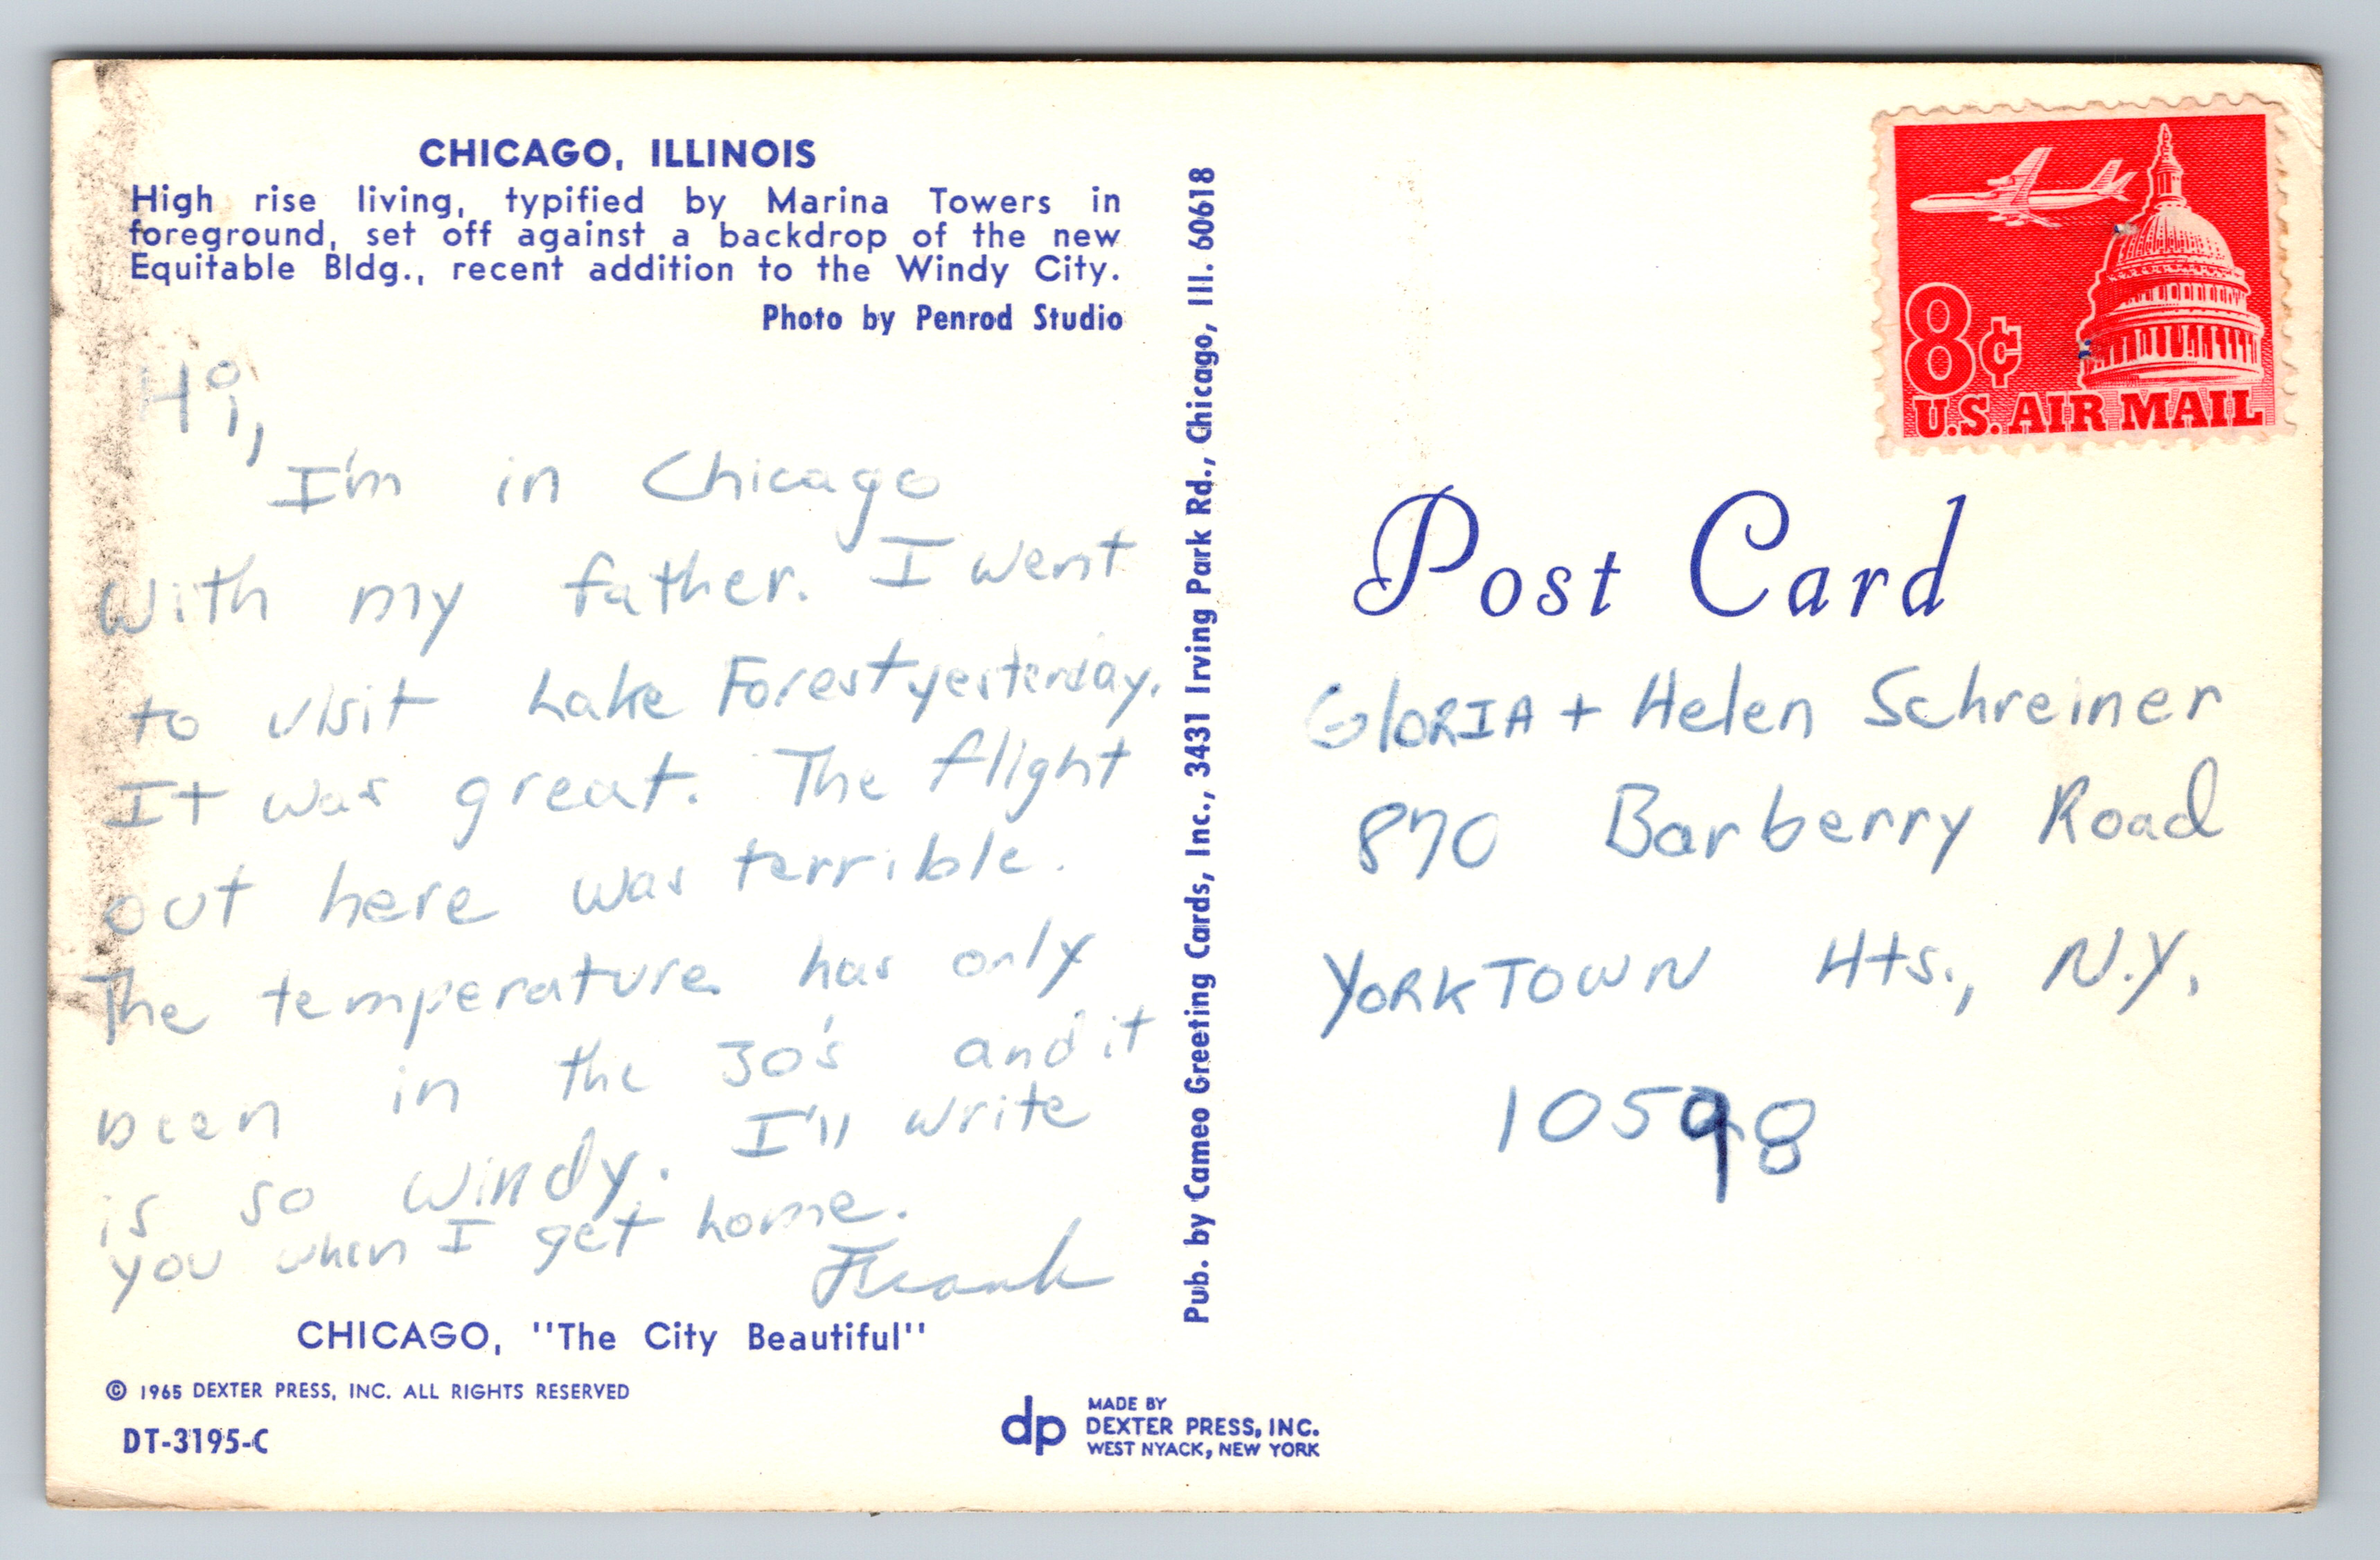 CHICAGO, ILLINOIS
High rise living, typified by Marina Towers in
foreground, set off against a backdrop of the new
Equitable Bldg., recent addition to the Windy City.
Photo by Penrod Studio
Hi,
I'm in Chicago
with my father. I went
to visit Lake Forest yesterday.
It was great. The flight
out here was terrible.
The temperature has only
been in the 30's and it
is so windy. I'll write
you when I get home.
Frank
CHICAGO, "The City Beautiful"
© 1965 DEXTER PRESS, INC. ALL RIGHTS RESERVED
DT-3195-C
dp
MADE BY
DEXTER PRESS, INC.
WEST NYACK, NEW YORK
Pub. by Cameo Greeting Cards, Inc., 3431 Irving Park Rd., Chicago, Ill. 60618
8¢
U.S. AIR MAIL
Post Card
GlORIA + Helen Schreiner
870 Barberry Road
YORKTOWN Hts., N.Y.
10598